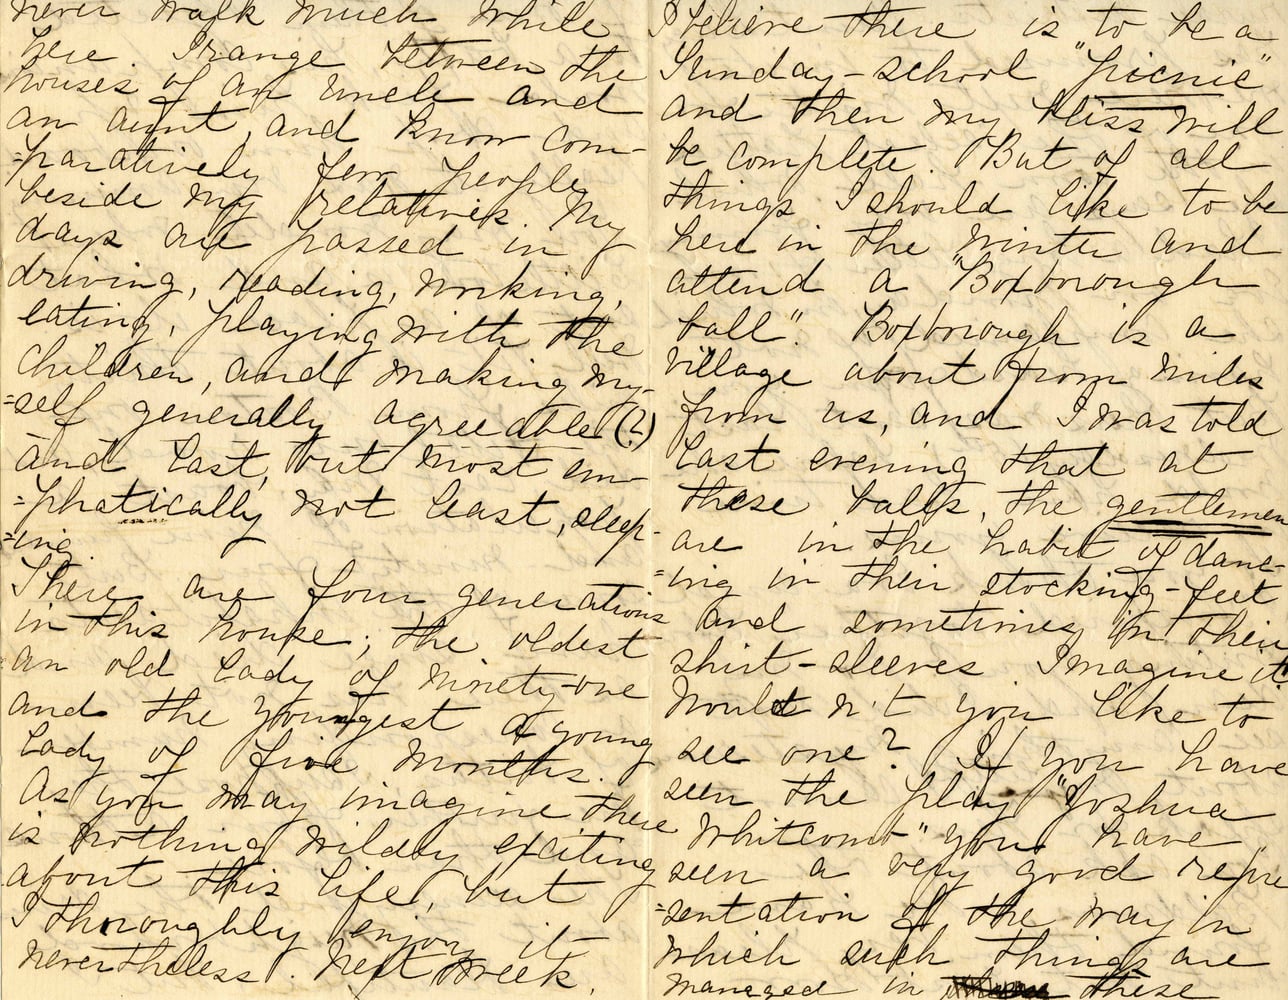 never walk much while
here. I range between the
houses of an uncle and
an aunt, and know com-
=paratively few people
beside my relatives. My
days are passed in
driving, reading, working,
eating, playing with the
children, and making my-
=self generally agreeable (?)
and last, but most em-
=phatically not least, sleep-
=ing.
There are four generations
in this house; the oldest
an old lady of ninety-one
and the youngest a young
lady of five months.
As you may imagine there
is nothing wildly exciting
about this life, but
I thoroughly enjoy it
nevertheless. Next week,
I believe there is to be a
Sunday-school "picnic"
and then my bliss will
be complete. But of all
things I should like to be
here in the winter and
attend a "Boxborough
ball". Boxborough is a
village about from miles
from us, and I was told
last evening that at
these balls, the gentlemen
are in the habit of danc-
=ing in their stocking-feet
and sometimes in their
shirt-sleeves. Imagine it!
Would n't you like to
see one? If you have
seen the play "Joshua
Whitcomb" you have
seen a very good repre
=sentation of the way in
which such things are
managed in these